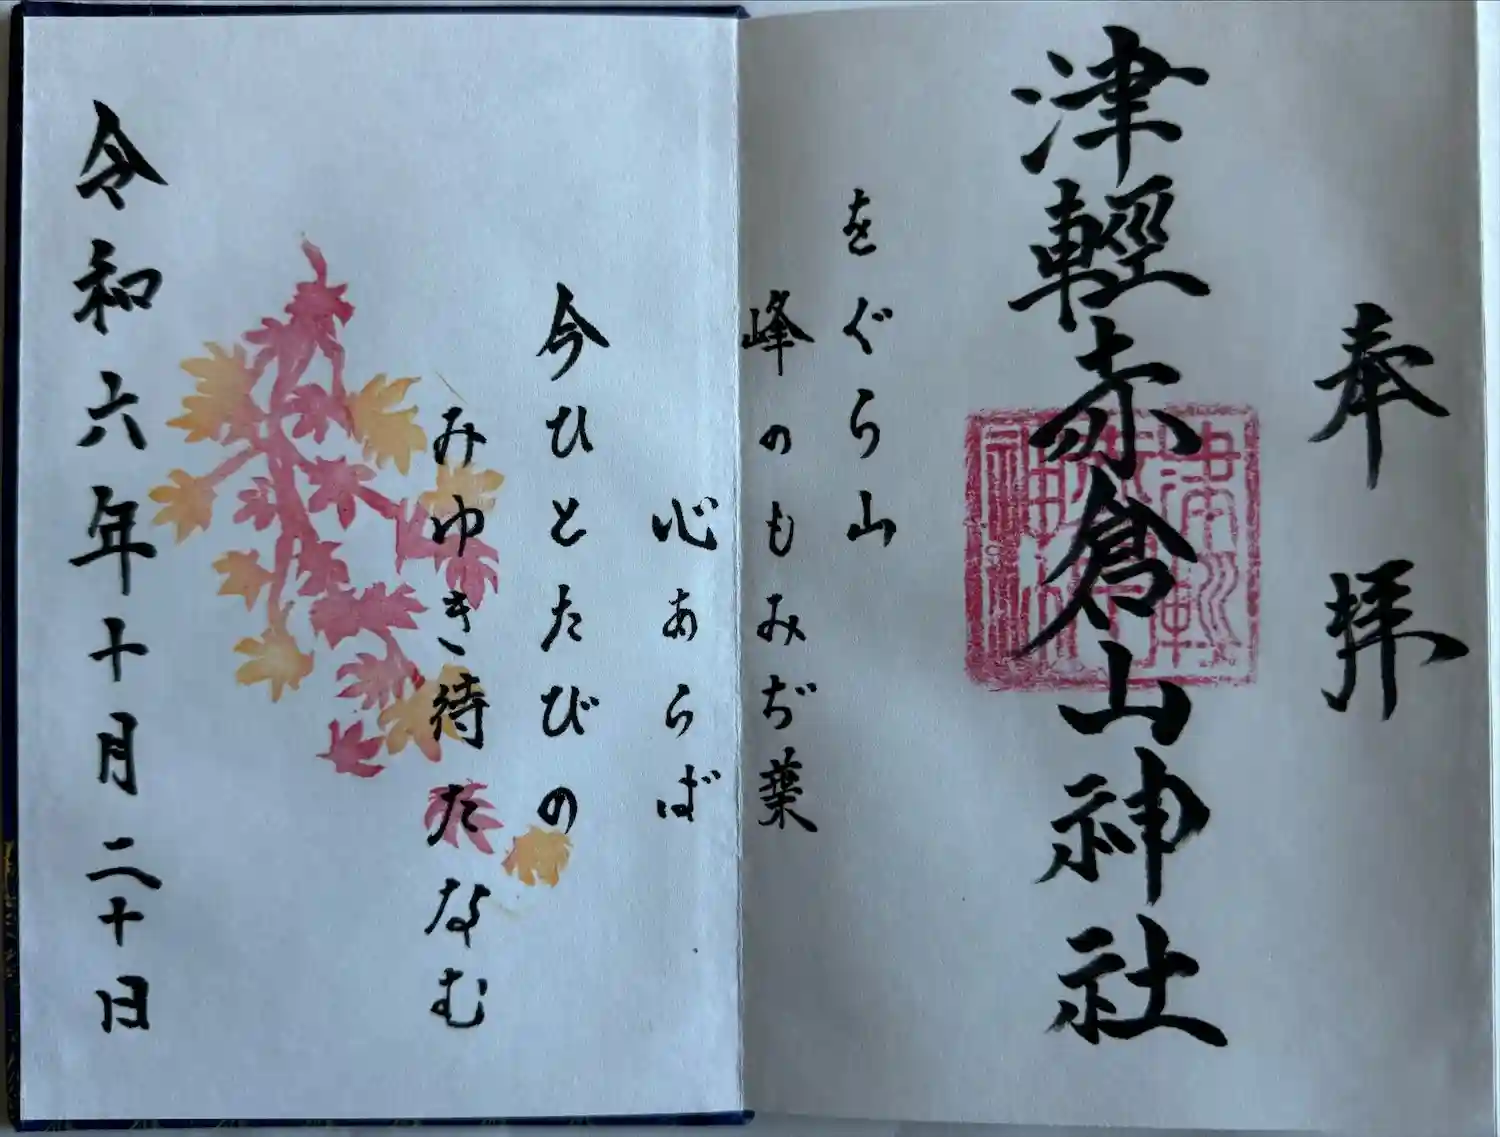 奉拝
津輕赤倉山神社
をぐら山
峰のもみぢ葉
心あらば
今ひとたびの
みゆき待たなむ
令和六年十月二十日